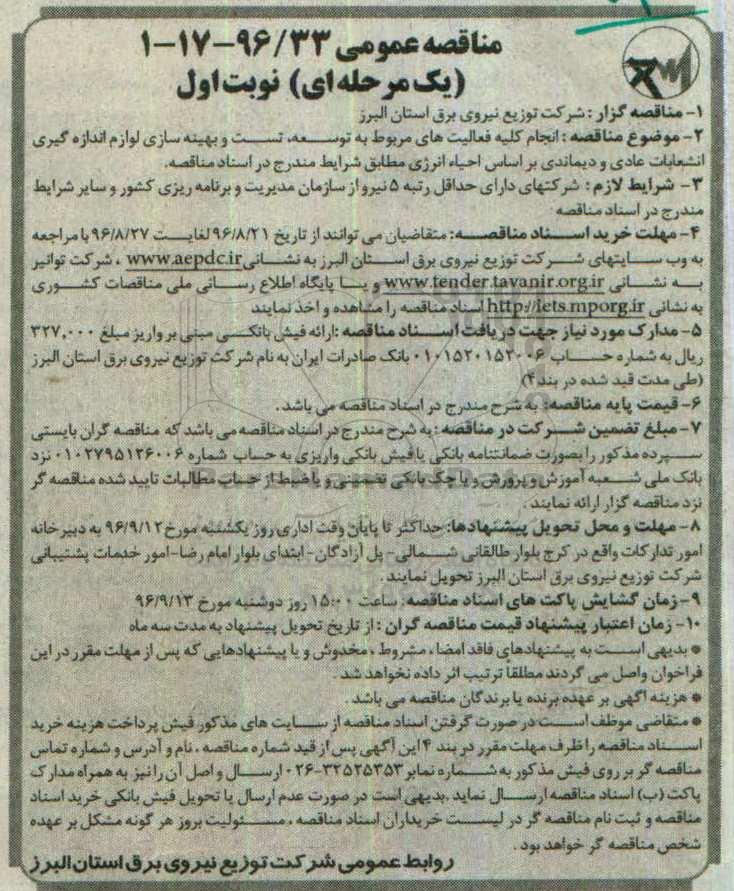 مناقصه عمومی ۹۶/۳۳-۱۷-۱
(یک مرحله ای) نوبت اول
۱- مناقصه گزار : شرکت توزیع نیروی برق استان البرز
۲- موضوع مناقصه : انجام کلیه فعالیت های مربوط به توسعه، تست و بهینه سازی لوازم اندازه گیری
انشعابات عادی و دیماندی بر اساس احیاء انرژی مطابق شرایط مندرج در اسناد مناقصه.
۳- شرایط لازم : شرکتهای دارای حداقل رتبه ۵ نیرو از سازمان مدیریت و برنامه ریزی کشور و سایر شرایط
مندرج در اسناد مناقصه
۴- مهلت خرید اسناد مناقصه: متقاضیان می توانند از تاریخ ۹۶/۸/۲۱ لغایت ۹۶/۸/۲۷ با مراجعه
به وب سایتهای شرکت توزیع نیروی برق استان البرز به نشانی www.aepdc.ir ، شرکت توانیر
به نشانی www.tender.tavanir.org.ir و یا پایگاه اطلاع رسانی ملی مناقصات کشوری
به نشانی http://iets.mporg.ir اسناد مناقصه را مشاهده و اخذ نمایند
۵- مدارک مورد نیاز جهت دریافت اسناد مناقصه :ارائه فیش بانکی مبنی بر واریز مبلغ ۳۲۷,۰۰۰
ریال به شماره حساب ۰۱۰۱۵۲۰۱۵۲۰۰۶ بانک صادرات ایران به نام شرکت توزیع نیروی برق استان البرز
(طی مدت قید شده در بند ۴)
۶- قیمت پایه مناقصه: به شرح مندرج در اسناد مناقصه می باشد .
۷- مبلغ تضمین شرکت در مناقصه : به شرح مندرج در اسناد مناقصه می باشد که مناقصه گران بایستی
سپرده مذکور را بصورت ضمانتنامه بانکی یا فیش بانکی واریزی به حساب شماره ۰۱۰۲۷۹۵۱۲۶۰۰۶ نزد
بانک ملی شعبه آموزش و پرورش و یا چک بانکی تضمینی و یا ضبط از حساب مطالبات تایید شده مناقصه گر
نزد مناقصه گزار ارائه نمایند .
۸- مهلت و محل تحویل پیشنهادها: حداکثر تا پایان وقت اداری روز یکشنبه مورخ ۹۶/۹/۱۲ به دبیرخانه
امور تدارکات واقع در کرج بلوار طالقانی شمالی- پل آزادگان- ابتدای بلوار امام رضا-امور خدمات پشتیبانی
شرکت توزیع نیروی برق استان البرز تحویل نمایند .
۹- زمان گشایش پاکت های اسناد مناقصه: ساعت ۱۵:۰۰ روز دوشنبه مورخ ۹۶/۹/۱۳
۱۰- زمان اعتبار پیشنهاد قیمت مناقصه گران : از تاریخ تحویل پیشنهاد به مدت سه ماه
* بدیهی است به پیشنهادهای فاقد امضا ، مشروط ، مخدوش و یا پیشنهادهایی که پس از مهلت مقرر در این
فراخوان واصل می گردند مطلقاً ترتیب اثر داده نخواهد شد .
* هزینه آگهی بر عهده برنده یا برندگان مناقصه می باشد .
* متقاضی موظف است در صورت گرفتن اسناد مناقصه از سایت های مذکور فیش پرداخت هزینه خرید
اسناد مناقصه را ظرف مهلت مقرر در بند ۴ این آگهی پس از قید شماره مناقصه ، نام و آدرس و شماره تماس
مناقصه گر بر روی فیش مذکور به شماره نمابر ۳۲۵۲۵۳۵۳-۰۲۶ ارسال و اصل آن را نیز به همراه مدارک
پاکت (ب) اسناد مناقصه ارسال نماید .بدیهی است در صورت عدم ارسال یا تحویل فیش بانکی خرید اسناد
مناقصه و ثبت نام مناقصه گر در لیست خریداران اسناد مناقصه ، مسئولیت بروز هر گونه مشکل بر عهده
شخص مناقصه گر خواهد بود .
روابط عمومی شرکت توزیع نیروی برق استان البرز